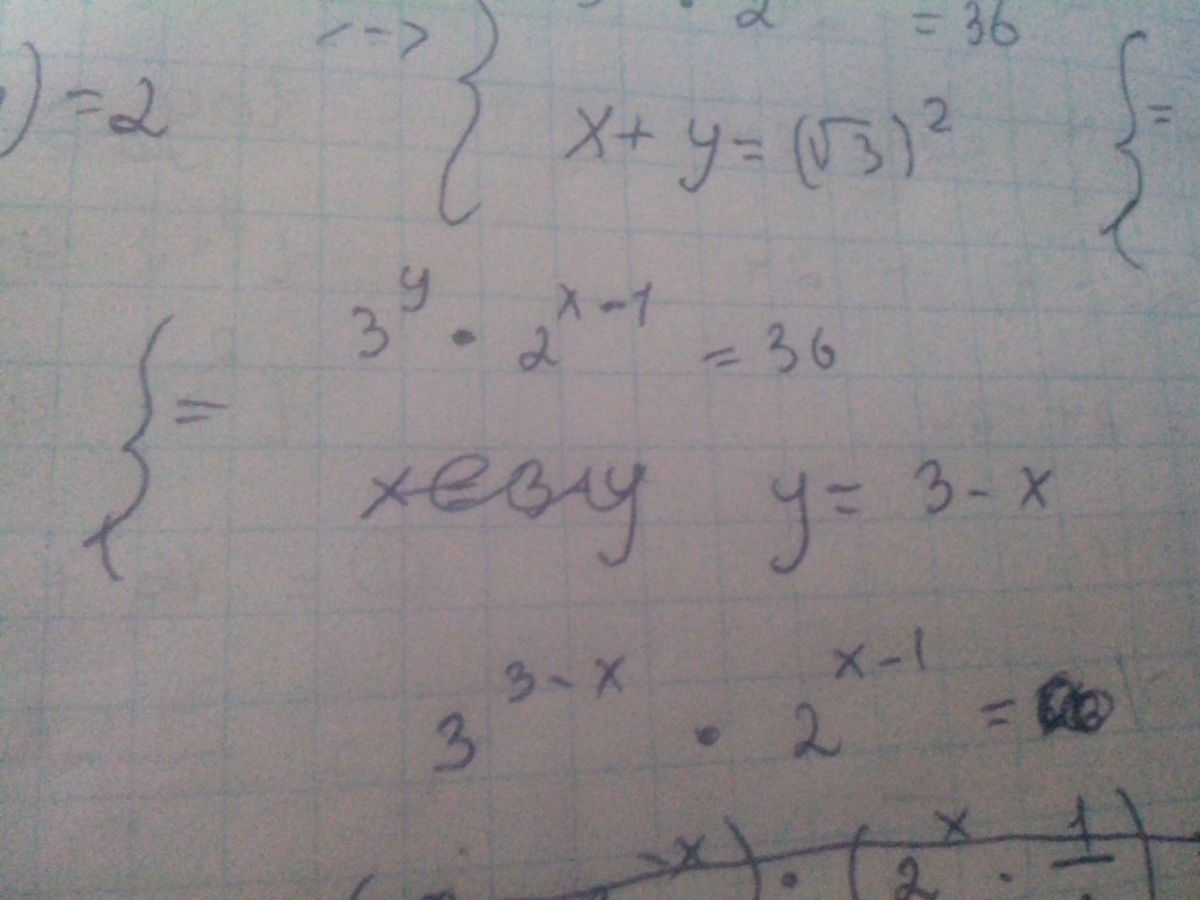 <--> { 2 = 36
) = 2 x + y = (√3)² { =
{ = 3^y · 2^(x-1) = 36
y = 3 - x
3^(3-x) · 2^(x-1) =
-x) · (2^x · 1